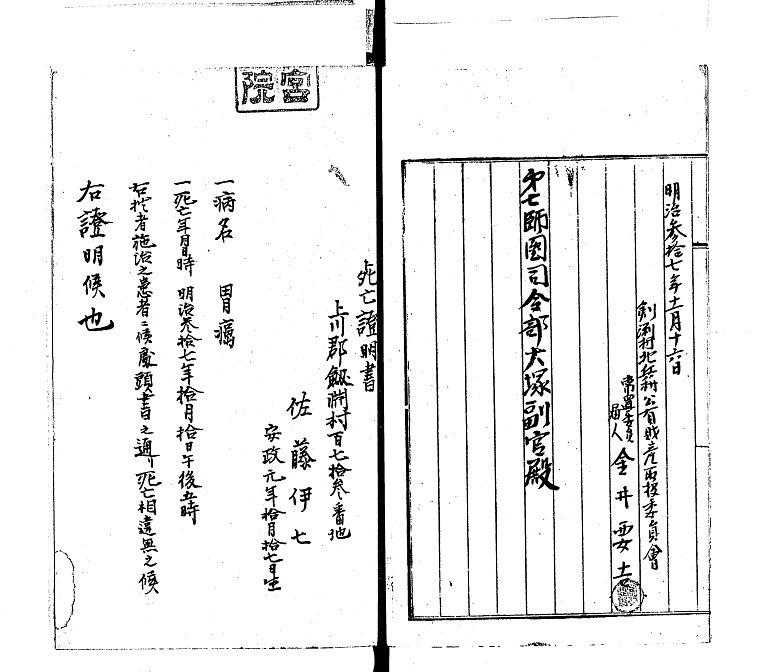 明治参拾七年十一月十六日
剣淵村北兵村公有財産取扱委員會
常置委員
届人 金井要吉
第七師團司令部大塚副官殿
死亡證明書
上川郡劔淵村百七拾参番地
佐藤伊七
安政元年拾月拾七日生
一病名 胃癌
一死亡年月日時 明治参拾七年拾月拾日午後五時
右拙者施治之患者ニ候處頭書之通リ死亡相違無之候
右證明候也
宮院